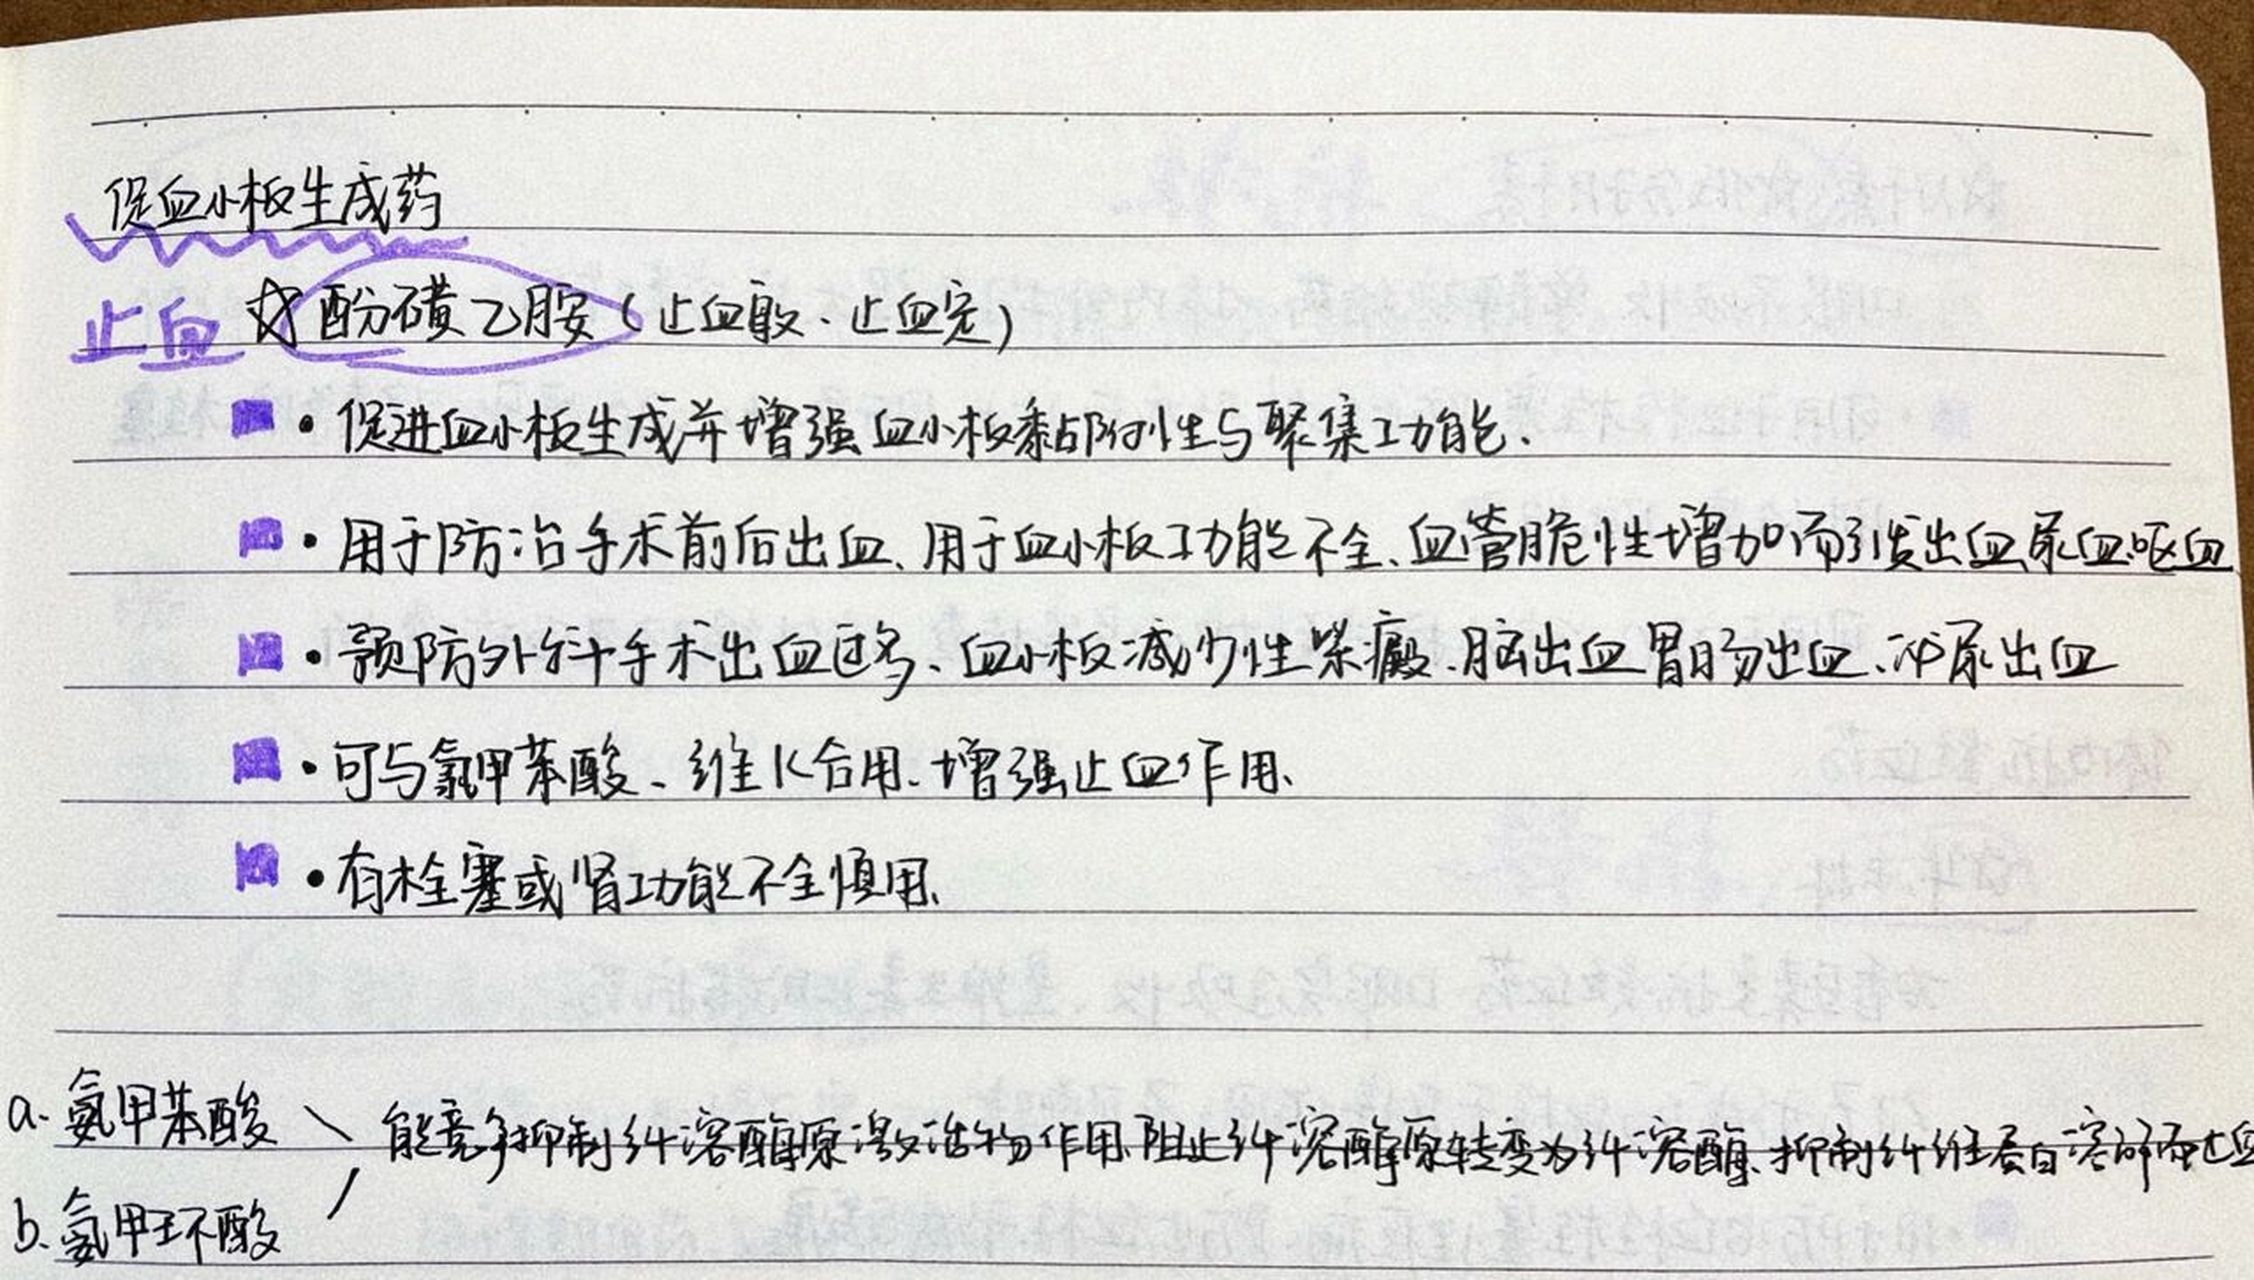 促血小板生成药
止血 ☆ 酚磺乙胺（止血敏、止血定）
• 促进血小板生成并增强血小板黏附性与聚集功能.
• 用于防治手术前后出血、用于血小板功能不全、血管脆性增加而引发出血、尿血、呕血
• 预防外科手术出血过多、血小板减少性紫癜、脑出血、胃肠出血、泌尿出血
• 可与氨甲苯酸、维K合用、增强止血作用、
• 有栓塞或肾功能不全慎用、
a. 氨甲苯酸
能竞争抑制纤溶酶原激活物作用、阻止纤溶酶原转变为纤溶酶、抑制纤维蛋白溶解而止血
b. 氨甲环酸